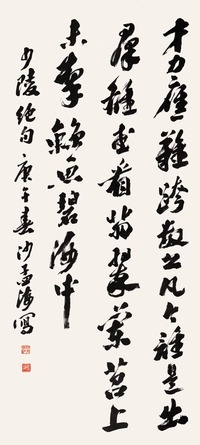 才力應難跨數公凡今誰是出
群雄或看翡翠蘭苕上
未掣鯨魚碧海中
少陵絕句庚午春沙孟海寫